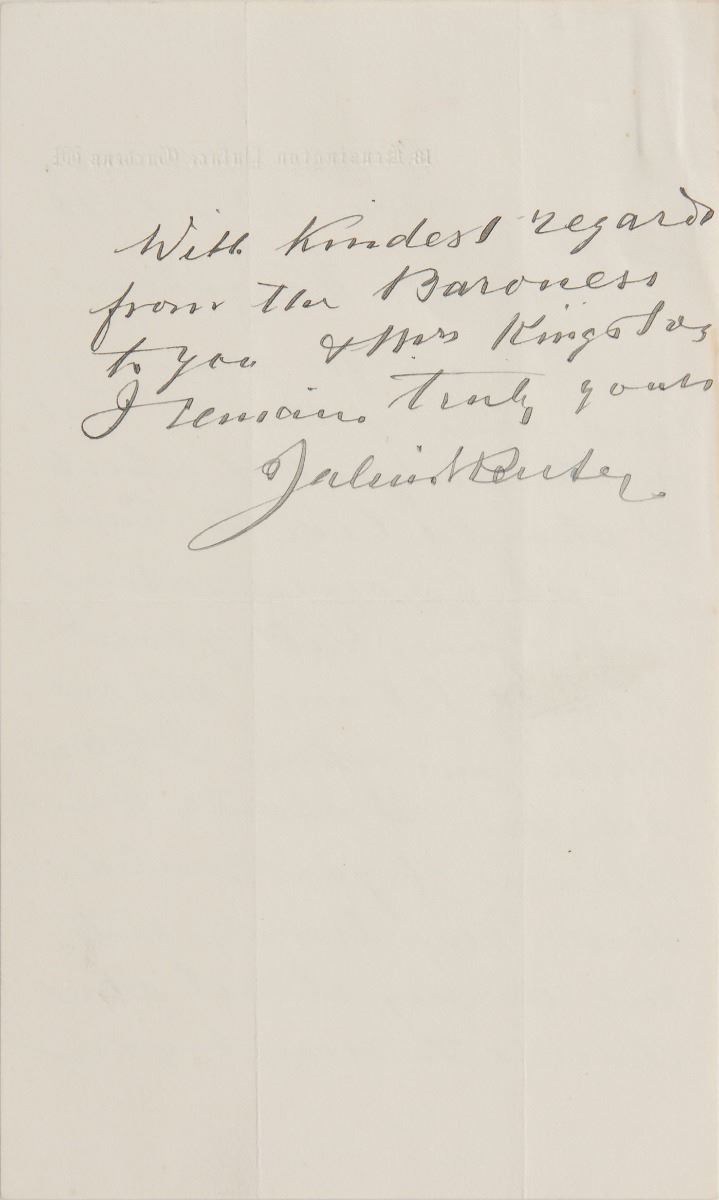 18 Kensington Palace Gardens W.
With Kindest regards
from the Baroness
to you & Mrs Kingston
I remain truly yours
Julius Reuter